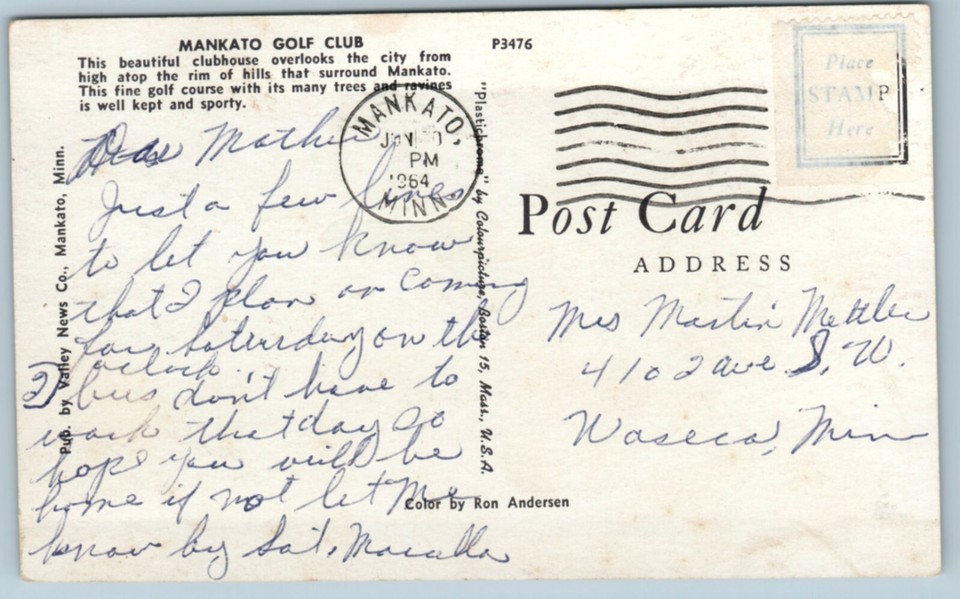 MANKATO GOLF CLUB
This beautiful clubhouse overlooks the city from
high atop the rim of hills that surround Mankato.
This fine golf course with its many trees and ravines
is well kept and sporty.
P3476
Place
STAMP
Here
MANKATO,
PM
1964
MINN.
Post Card
ADDRESS
Dear Mother
Just a few lines
to let you know
that I plan on coming
Saturday on the
2 o'clock
bus don't have to
work that day so
hope you will be
home if not let me
know by Sat.
Mrs Martin Mettler
410 2 ave S. W.
Waseca, Minn
Pub. by Valley News Co., Mankato, Minn.
"Plastichrome" by Colourpicture, Boston 15, Mass., U.S.A.
Color by Ron Andersen